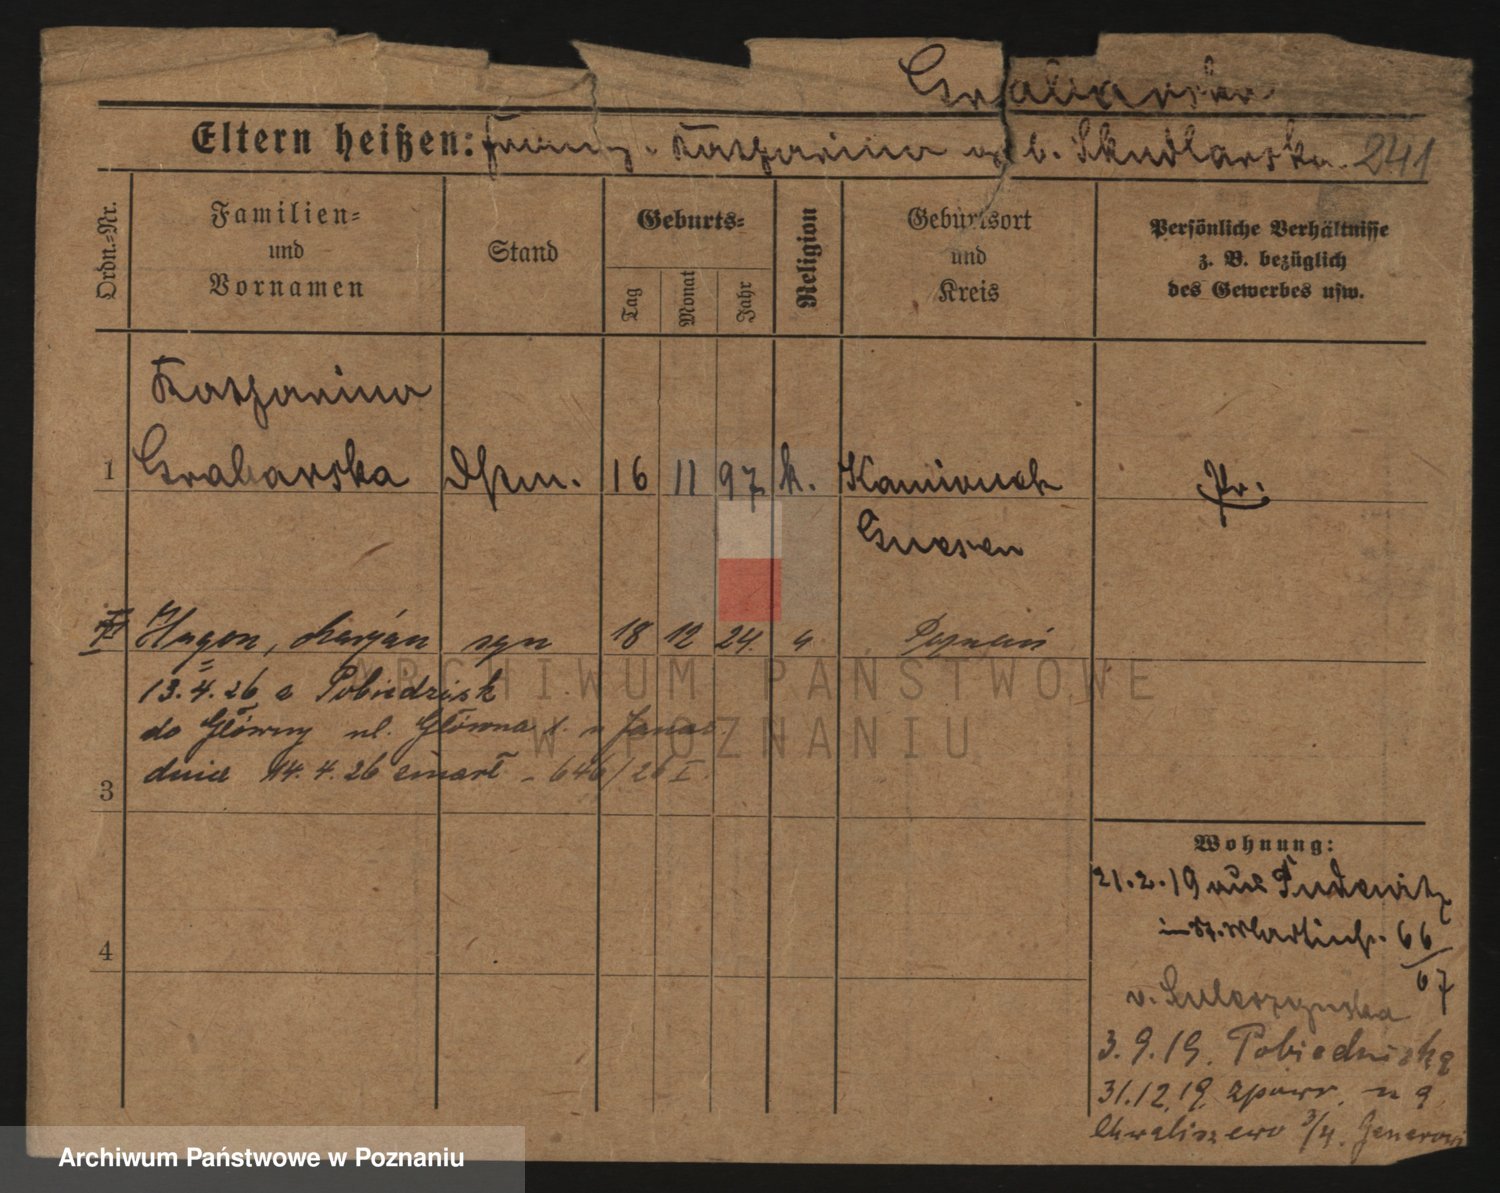 Grabarska
Eltern heißen: Franz u. Katharina geb. Skudlarska 241
Ordn.=Nr.
Familien=
und
Vornamen
Stand
Geburts=
Tag
Monat
Jahr
Religion
Geburtsort
und
Kreis
Persönliche Verhältnisse
z. B. bezüglich
des Gewerbes usw.
Katharina
1 Grabarska 16 11 97 k. Kamionek Pr.
Gnesen
Hugon, Marjan syn 18 12 24. Poznań
13.4.26 z Pobiedzisk
do Główny ul. Główna
dnia 14.4.26 zmarł - 646/26 I.
3
4
Wohnung:
21.2.19 aus Pudewitz
in St. Martinstr. 66
/67
v. Suleszynska
3.9.19. Pobiedziska
31.12.19. zpowr.
Chwaliszewo 3/4.
ARCHIWUM PAŃSTWOWE
W POZNANIU
Archiwum Państwowe w Poznaniu